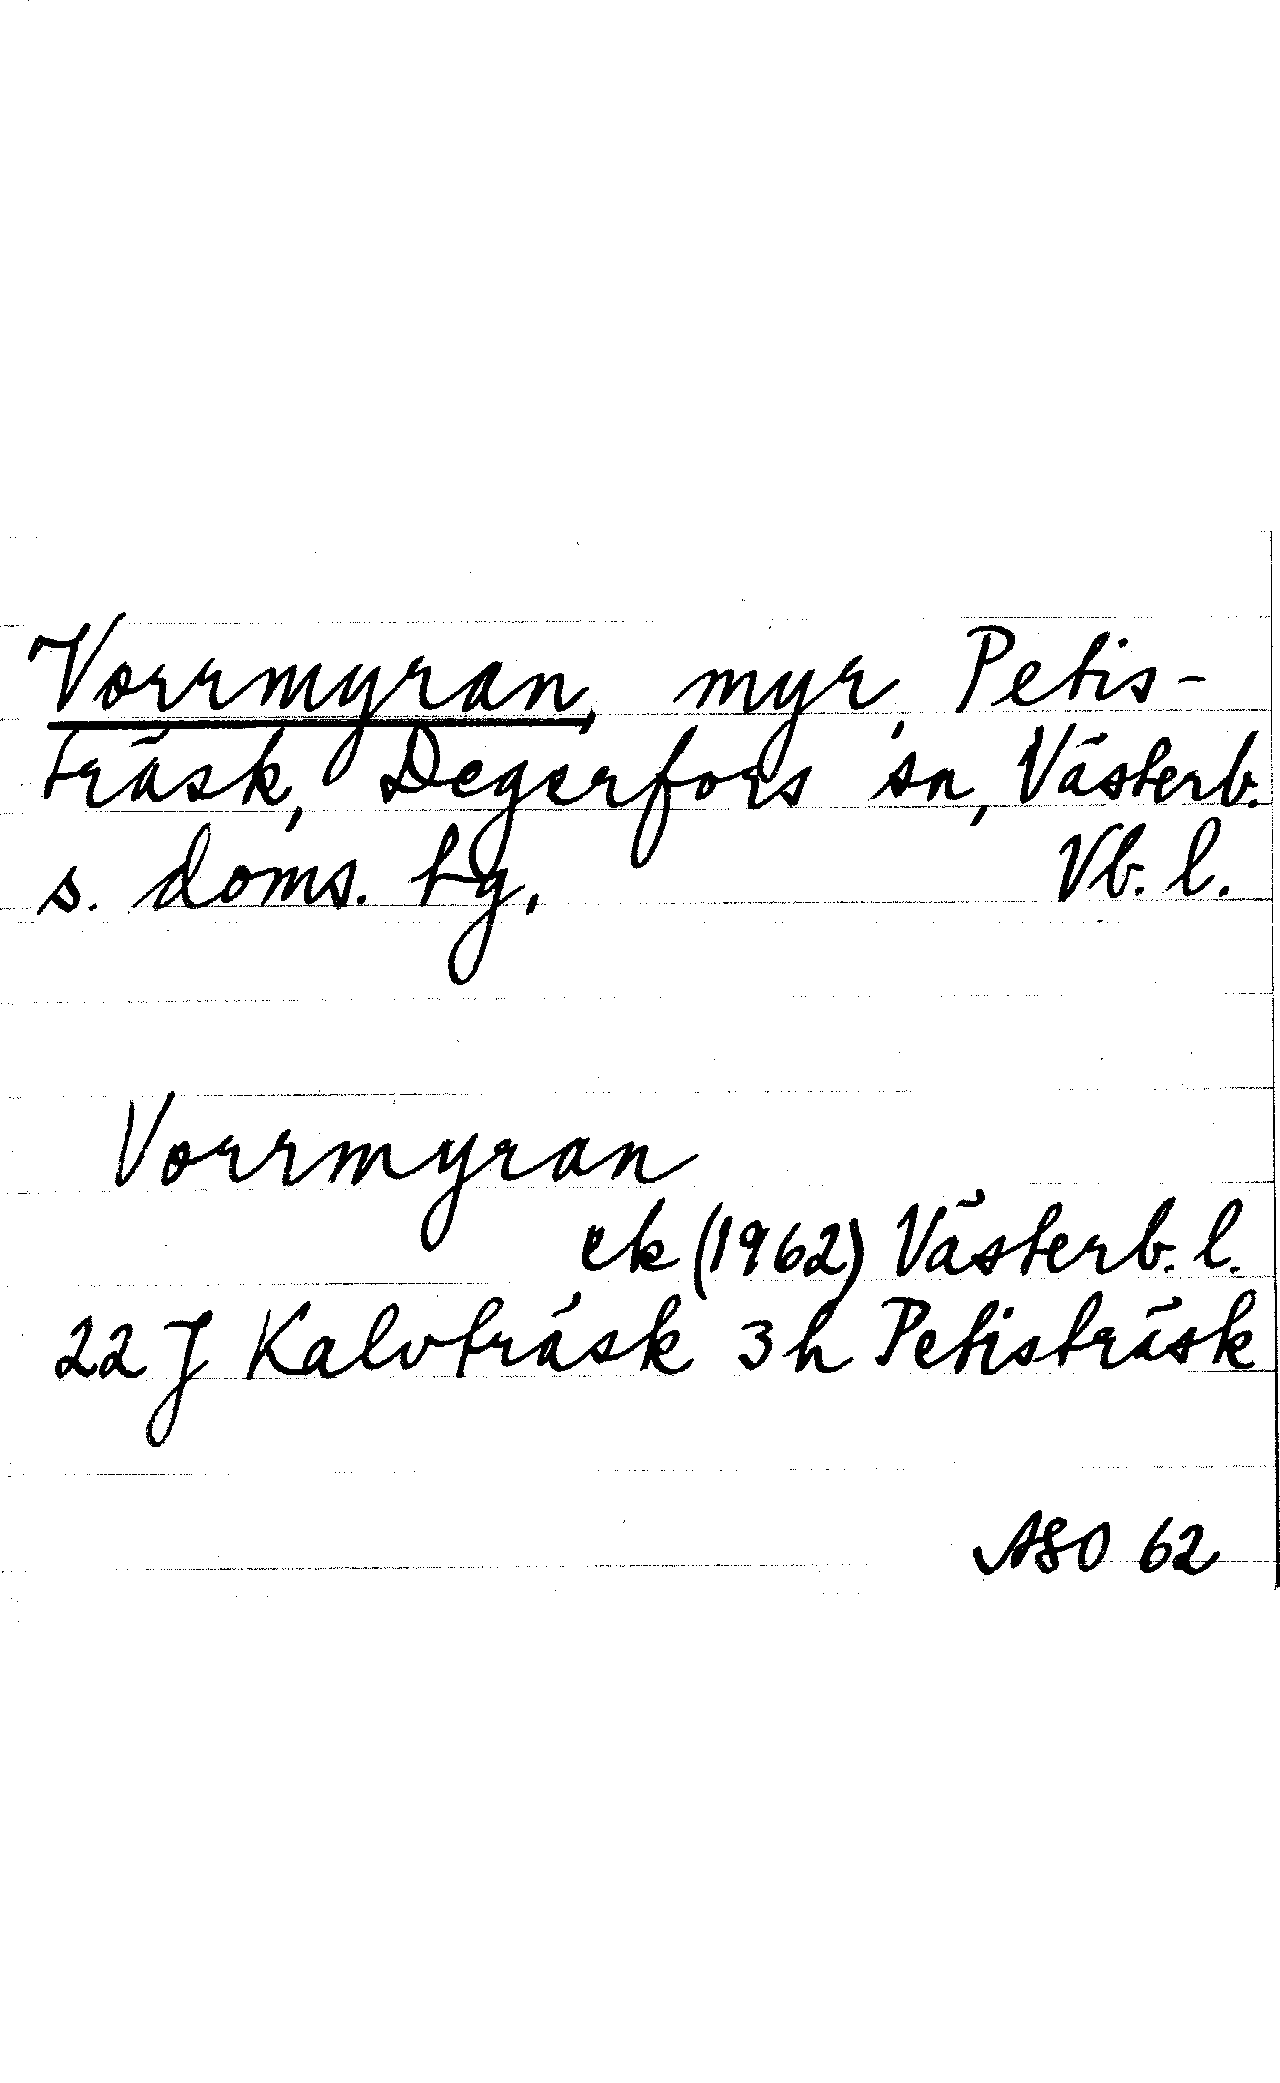 Vorrmyran, myr, Petis-
träsk, Degerfors sn, Västerb.
s. doms. tg. Vb. l.
Vorrmyran
ek (1962) Västerb. l.
22 J Kalvträsk 3 h Petisträsk
ASO 62